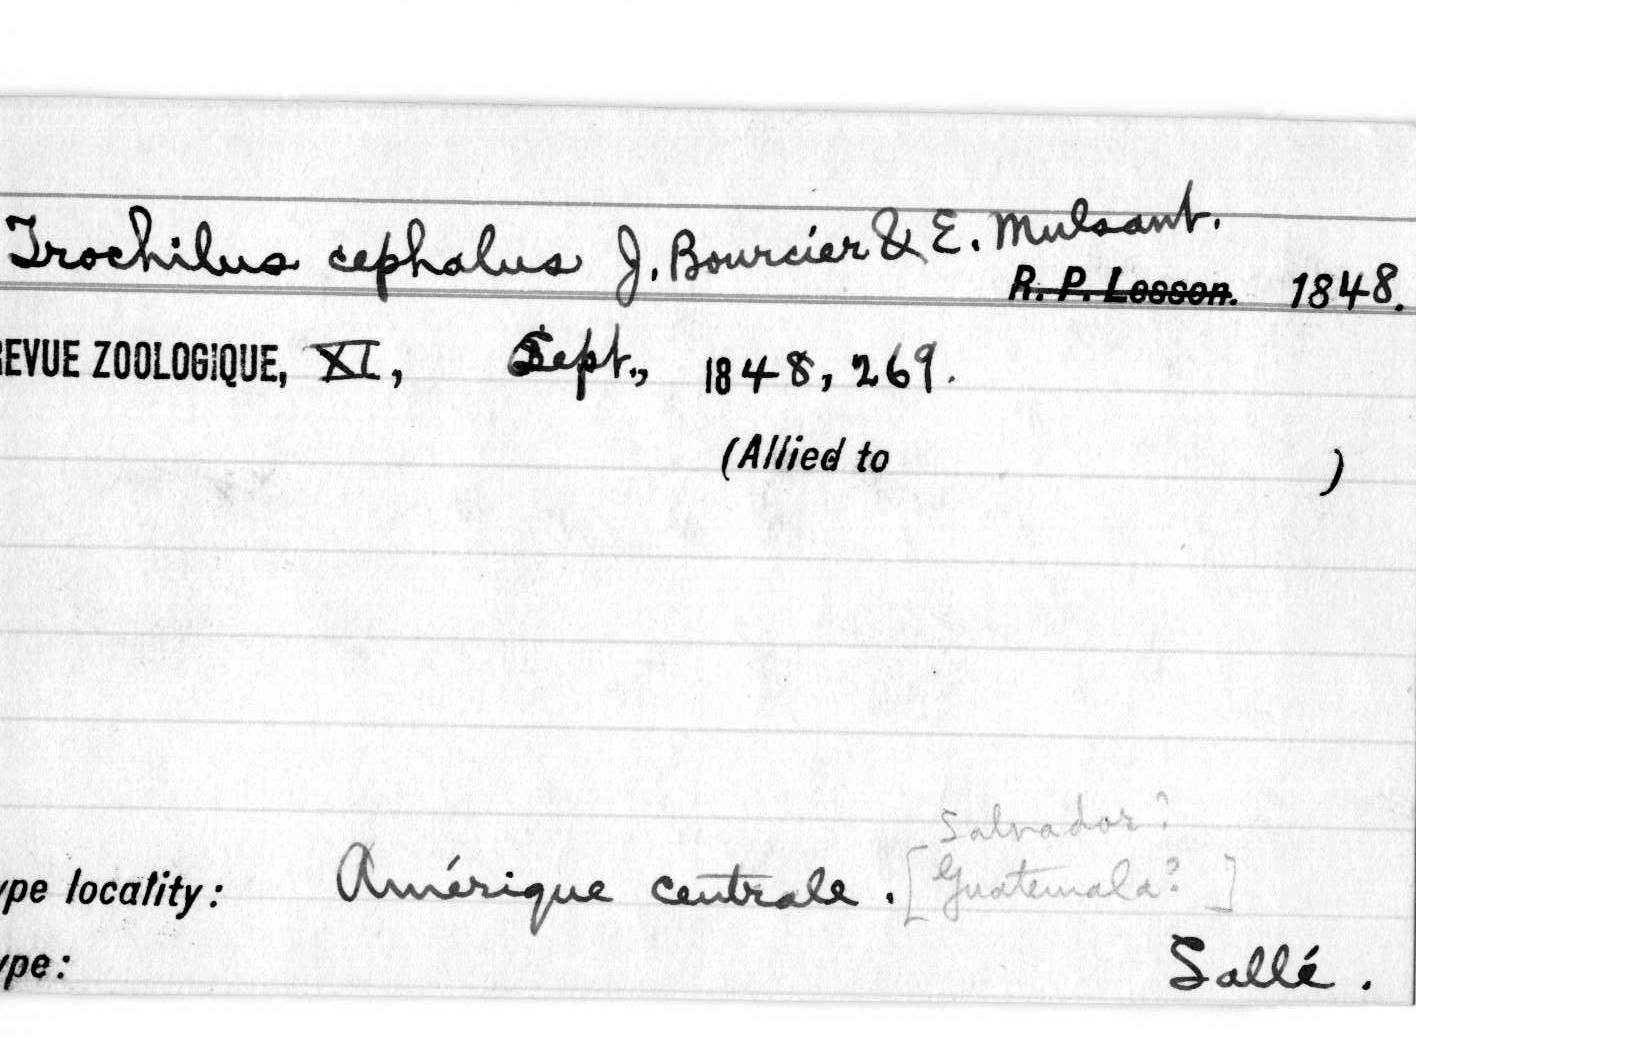 Trochilus cephalus J. Bourcier & E. Mulsant.
R. P. Lesson. 1848.
REVUE ZOOLOGIQUE, XI, Sept., 1848, 269.
(Allied to )
Salvador?
ype locality: Amérique centrale. [Guatemala? ]
ype: Sallé.